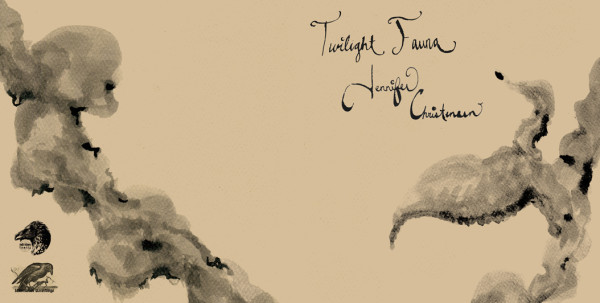 Twilight Fauna
Jennifer
Christensen